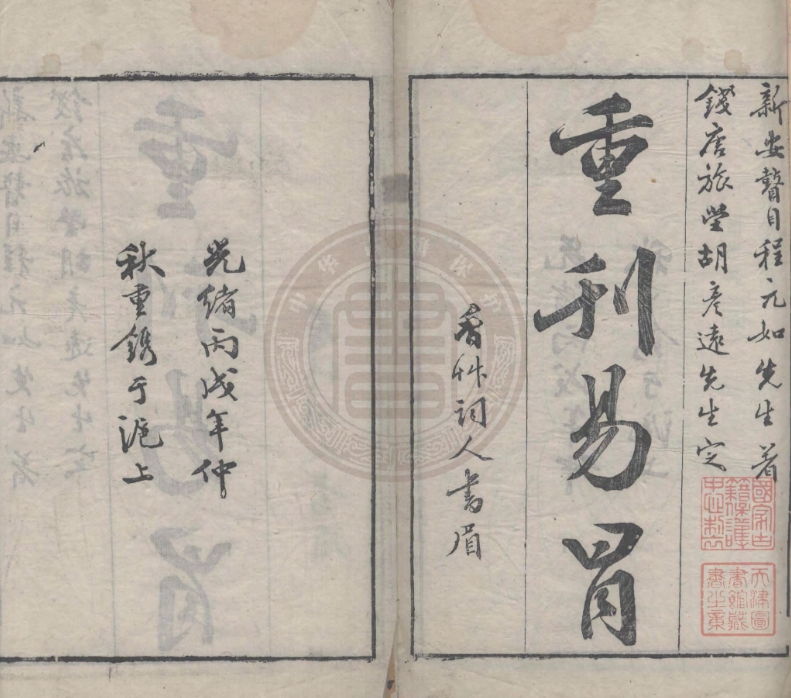 新安瞽目程元如先生著
錢唐旅堂胡彥遠先生定
重刊易冐
香艸詞人書眉
國家古
籍保護
天津圖
書館藏
書之章
光緒丙戌年仲
秋重鐫于滬上